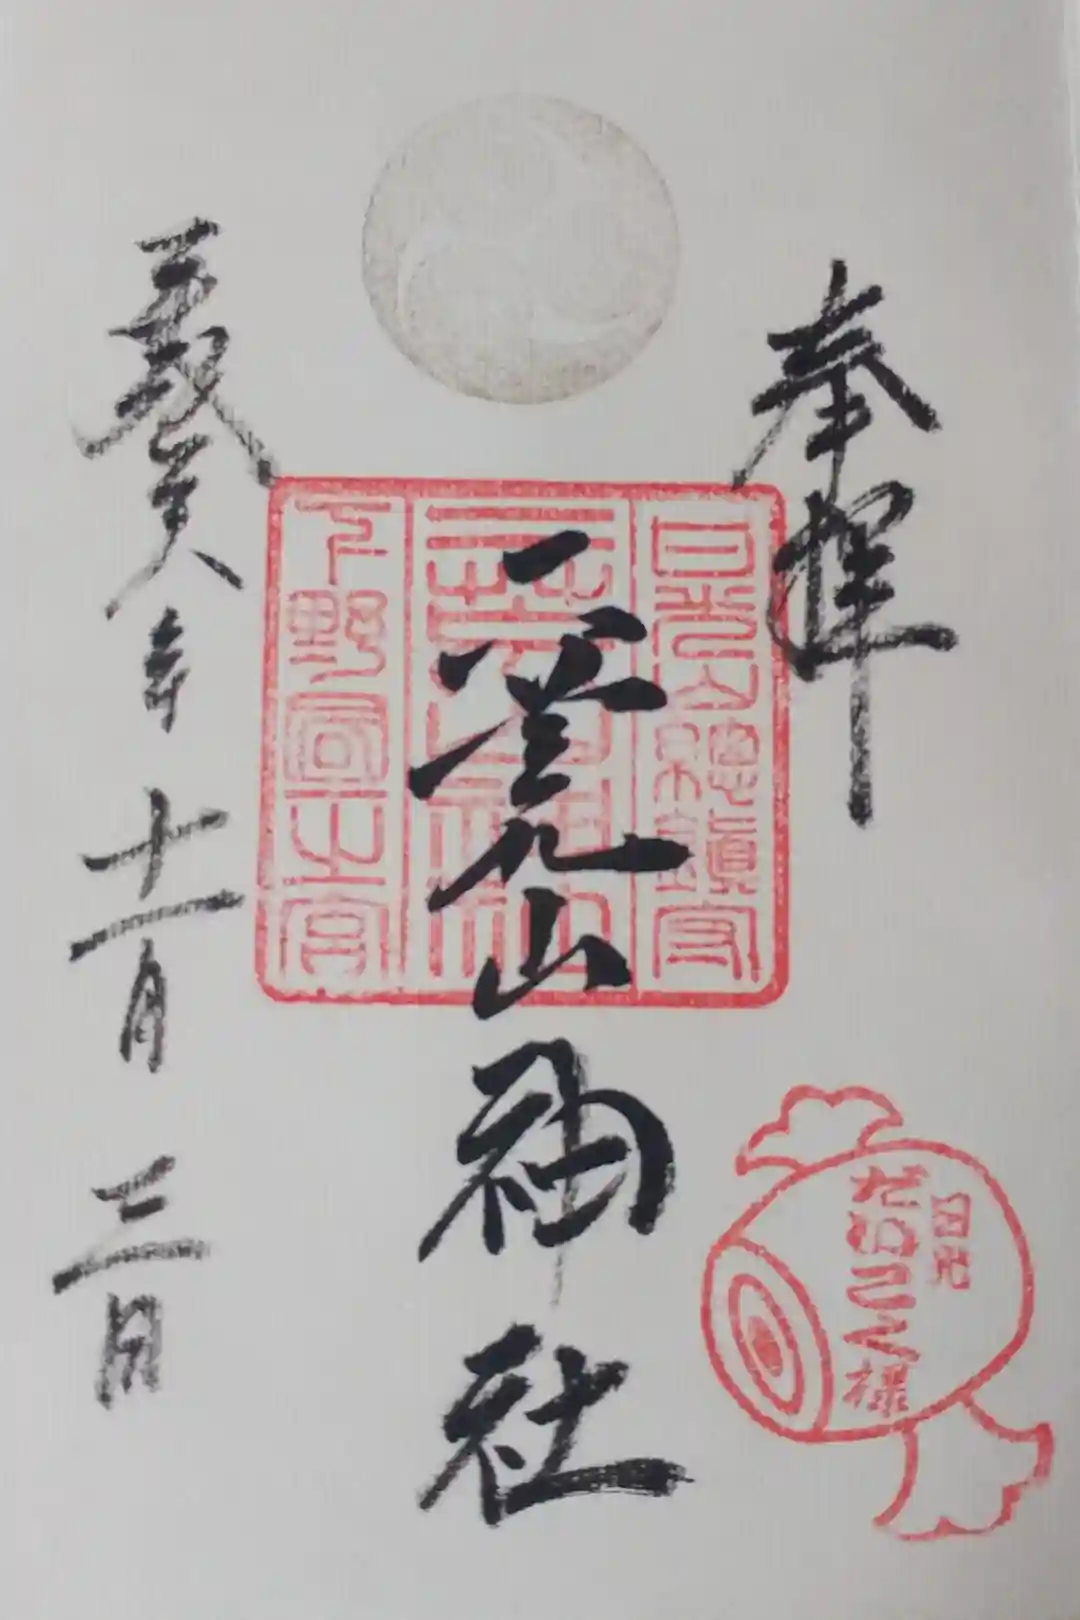 奉拝
日光山總鎮守
二荒山神社
下野國一之宮
二荒山神社
平成廿八年十一月三日
日光
だいこく様